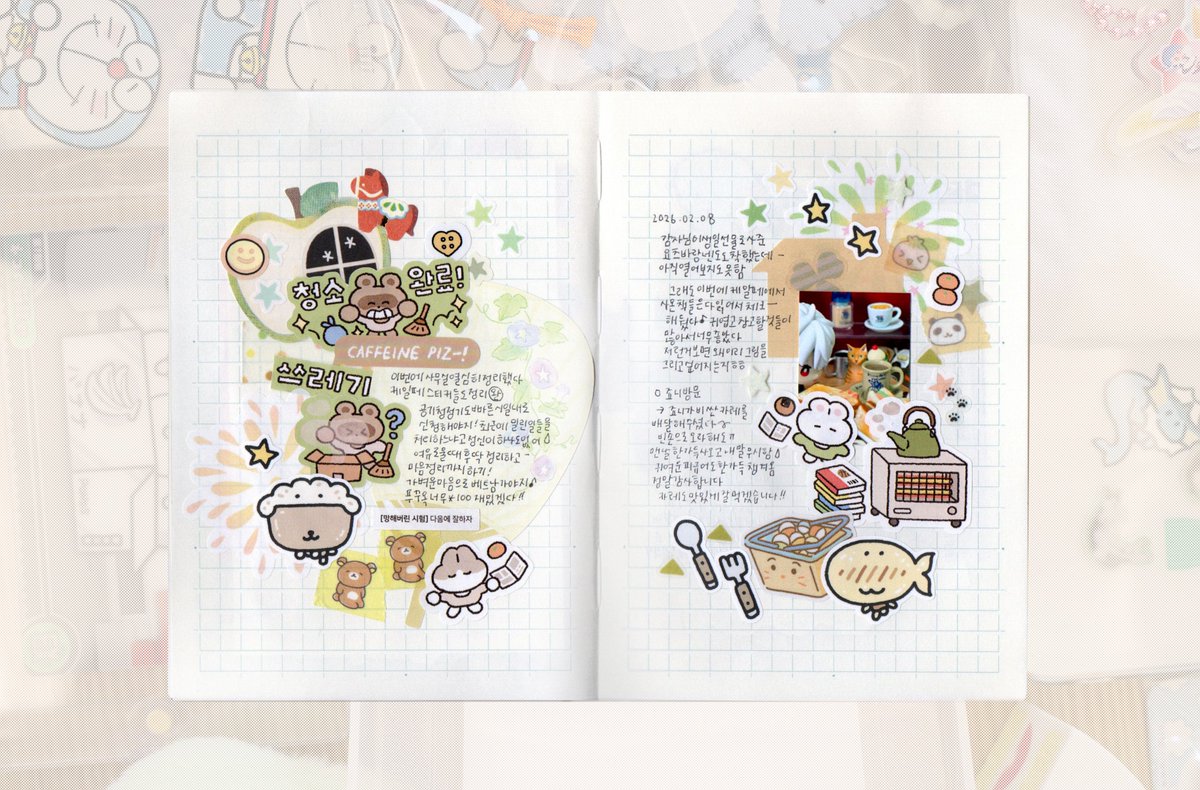 청소 완료!
CAFFEINE PIZ-!
쓰레기
이번에 사무실 열심히 정리했다
케일페 스티커들도 정리 완
공기청정기도 바빠른 시일내로
신청해야지! 최근에 밀린 일들을
처리하느냐고 정신이 하나도 없어
여유로울때 후딱 정리하고~
마음정리까지 하기!
가벼운 마음으로 베트남 가야지♪
푸꾸옥 너무 *100 재밌겠다!!
[망해버린 시험] 다음에 잘하자
2026.02.08
감자님이 생일선물로 사준
요즈바랑 넨도 도착했는데 ~
아직 열어보지도 못함
그래도 이번에 케일페에서
사온 책들은 다 읽어서 체크
해뒀다♪ 귀엽고 참고할 것들이
많아서 너무 좋았다
저런거보면 왜이리 그림을
그리고 싶어지는지ㅎㅎ
○ 죠니방문
죠니가 비싼 카레를
배달해주셨다
빈손으로 오라해도ㅠ
맨날 한가득 사오고 내말 무시함
귀여운 피규어도 한가득 챙겨옴
정말 감사합니다
카레도 맛있게 잘먹겠습니다!!